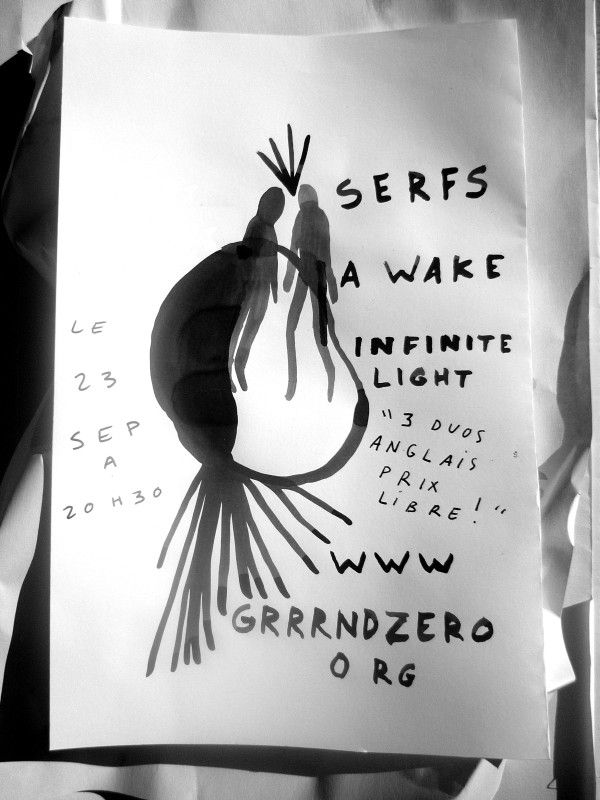 SERFS
A WAKE
INFINITE
LIGHT
"3 DUOS
ANGLAIS
PRIX
LIBRE!"
LE
23
SEP
A
20H30
WWW
GRRRNDZERO
ORG